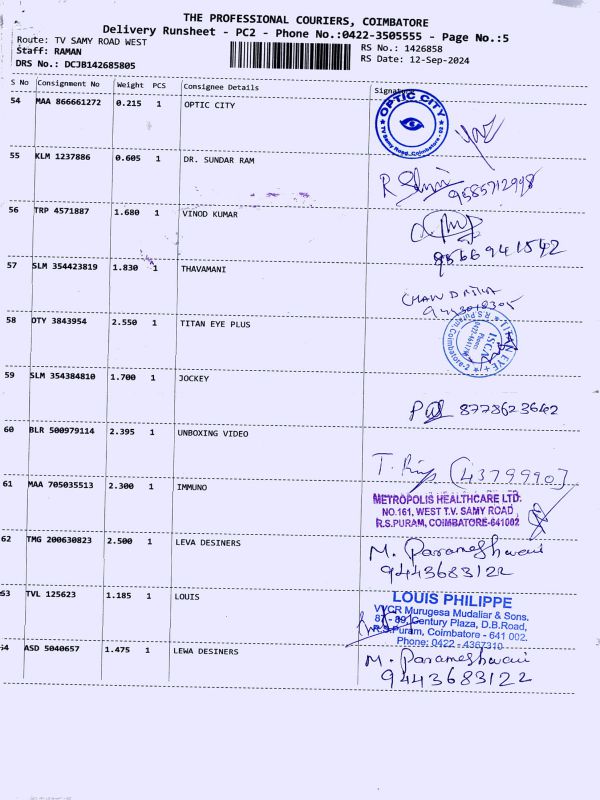 THE PROFESSIONAL COURIERS, COIMBATORE
Delivery Runsheet - PC2 - Phone No.:0422-3505555 - Page No.:5
Route: TV SAMY ROAD WEST
RS No.: 1426858
Staff: RAMAN
RS Date: 12-Sep-2024
DRS No.: DCJB142685805
S No Consignment No Weight PCS Consignee Details Signature
54 MAA 866661272 0.215 1 OPTIC CITY
OPTIC CITY
TV Samy Road, Coimbatore - 02
55 KLM 1237886 0.605 1 DR. SUNDAR RAM
R 9585712998
56 TRP 4571887 1.680 1 VINOD KUMAR
9566941542
57 SLM 354423819 1.830 1 THAVAMANI
58 DTY 3843954 2.550 1 TITAN EYE PLUS
TITAN EYE +
R.S.Puram, Coimbatore-2
59 SLM 354384810 1.700 1 JOCKEY
8778623642
60 BLR 500979114 2.395 1 UNBOXING VIDEO
T. (4379990)
61 MAA 705035513 2.300 1 IMMUNO
METROPOLIS HEALTHCARE LTD.
NO.161, WEST T.V. SAMY ROAD,
R.S.PURAM, COIMBATORE-641002
62 TMG 200630823 2.500 1 LEVA DESINERS
M. Parameshwari
9443683122
63 TVL 125623 1.185 1 LOUIS
LOUIS PHILIPPE
VVCR Murugesa Mudaliar & Sons.
87 - 89, Century Plaza, D.B.Road,
R.S.Puram, Coimbatore - 641 002.
Phone: 0422 - 4367310
64 ASD 5040657 1.475 1 LEWA DESINERS
M. Parameshwari
9443683122